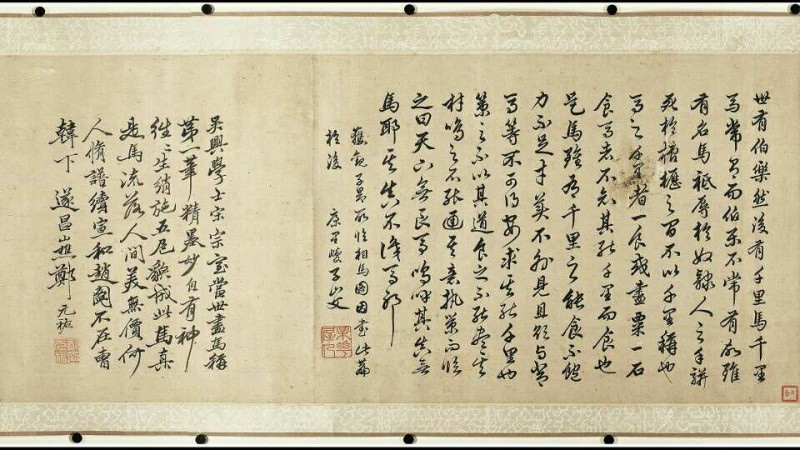 世有伯樂然後有千里馬千里
馬常有而伯樂不常有故雖
有名馬祗辱於奴隸人之手駢
死於槽櫪之間不以千里稱也
馬之千里者一食或盡粟一石
食馬者不知其能千里而食也
是馬雖有千里之能食不飽
力不足才美不外見且欲與常
馬等不可得安求其能千里也
策之不以其道食之不能盡其
材鳴之不能通其意執策而臨
之曰天下無良馬嗚呼其真無
馬耶其真不識馬耶
舊觀子昂所臨相馬圖因書此篇
於後 康里巙子山父
吳興學士宋宗室當世畫馬稱
第一筆精墨妙自有神
往往生綃施五尺貌成此馬真
是馬流落人間美無價何
人脩譜續宣和趙國不在曹
韓下 遂昌山樵鄭元祐